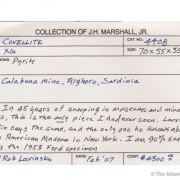 COLLECTION OF J.H. MARSHALL, JR.
COVELLITE CAT. NO. 4408
Xls SIZE: 70x55x35
Pyrite
Calabona Mine, Alghero, Sardinia
In 45 years of snooping in museums and mine
, this is the only piece I had ever seen. Larr
in says the same, and the only one he knows abo
American Museum in New York. I am 90% su
the 1958 Ford specimen
Rob Lavinsky DATE Feb '07 $4500
© The